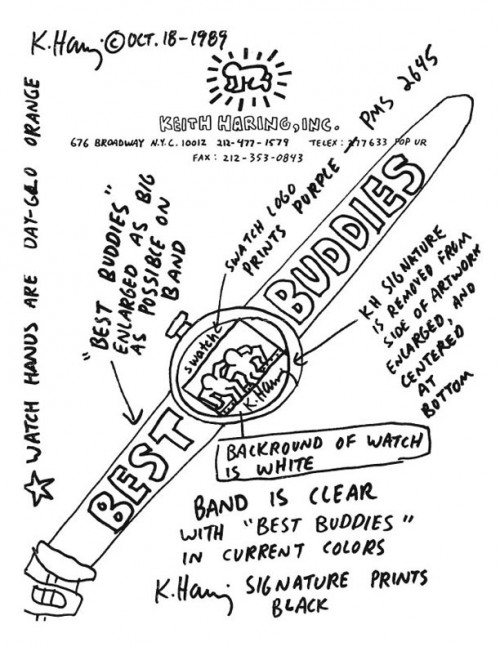 K. Haring © OCT. 18 - 1989
KEITH HARING, INC.
676 BROADWAY N.Y.C. 10012 212-477-1579 TELEX: 277633 POP UR
FAX: 212-353-0843
☆ WATCH HANDS ARE DAY-GLO ORANGE
"BEST BUDDIES"
ENLARGED AS BIG
AS POSSIBLE ON
BAND
SWATCH LOGO
PRINTS PURPLE - PMS 2645
KH SIGNATURE
IS REMOVED FROM
SIDE OF ARTWORK
ENLARGED, AND
CENTERED
AT
BOTTOM
BUDDIES
swatch
K. Haring
BEST
BACKROUND OF WATCH
IS WHITE
BAND IS CLEAR
WITH "BEST BUDDIES"
IN CURRENT COLORS
K. Haring SIGNATURE PRINTS
BLACK